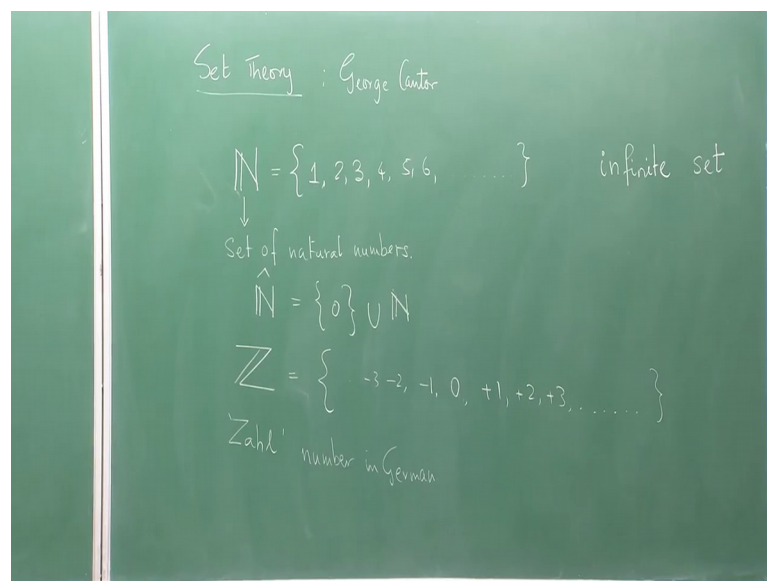 Set Theory : George Cantor
ℕ = { 1, 2, 3, 4, 5, 6, ..... } infinite set
↓
Set of natural numbers.
ℕ̂ = {0} ∪ ℕ
ℤ = { -3 -2, -1, 0, +1, +2, +3, ....... }
'Zahl' number in German